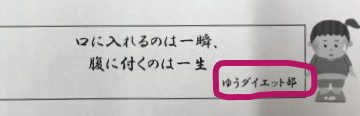 口に入れるのは一瞬、
腹に付くのは一生
ゆうダイエット部